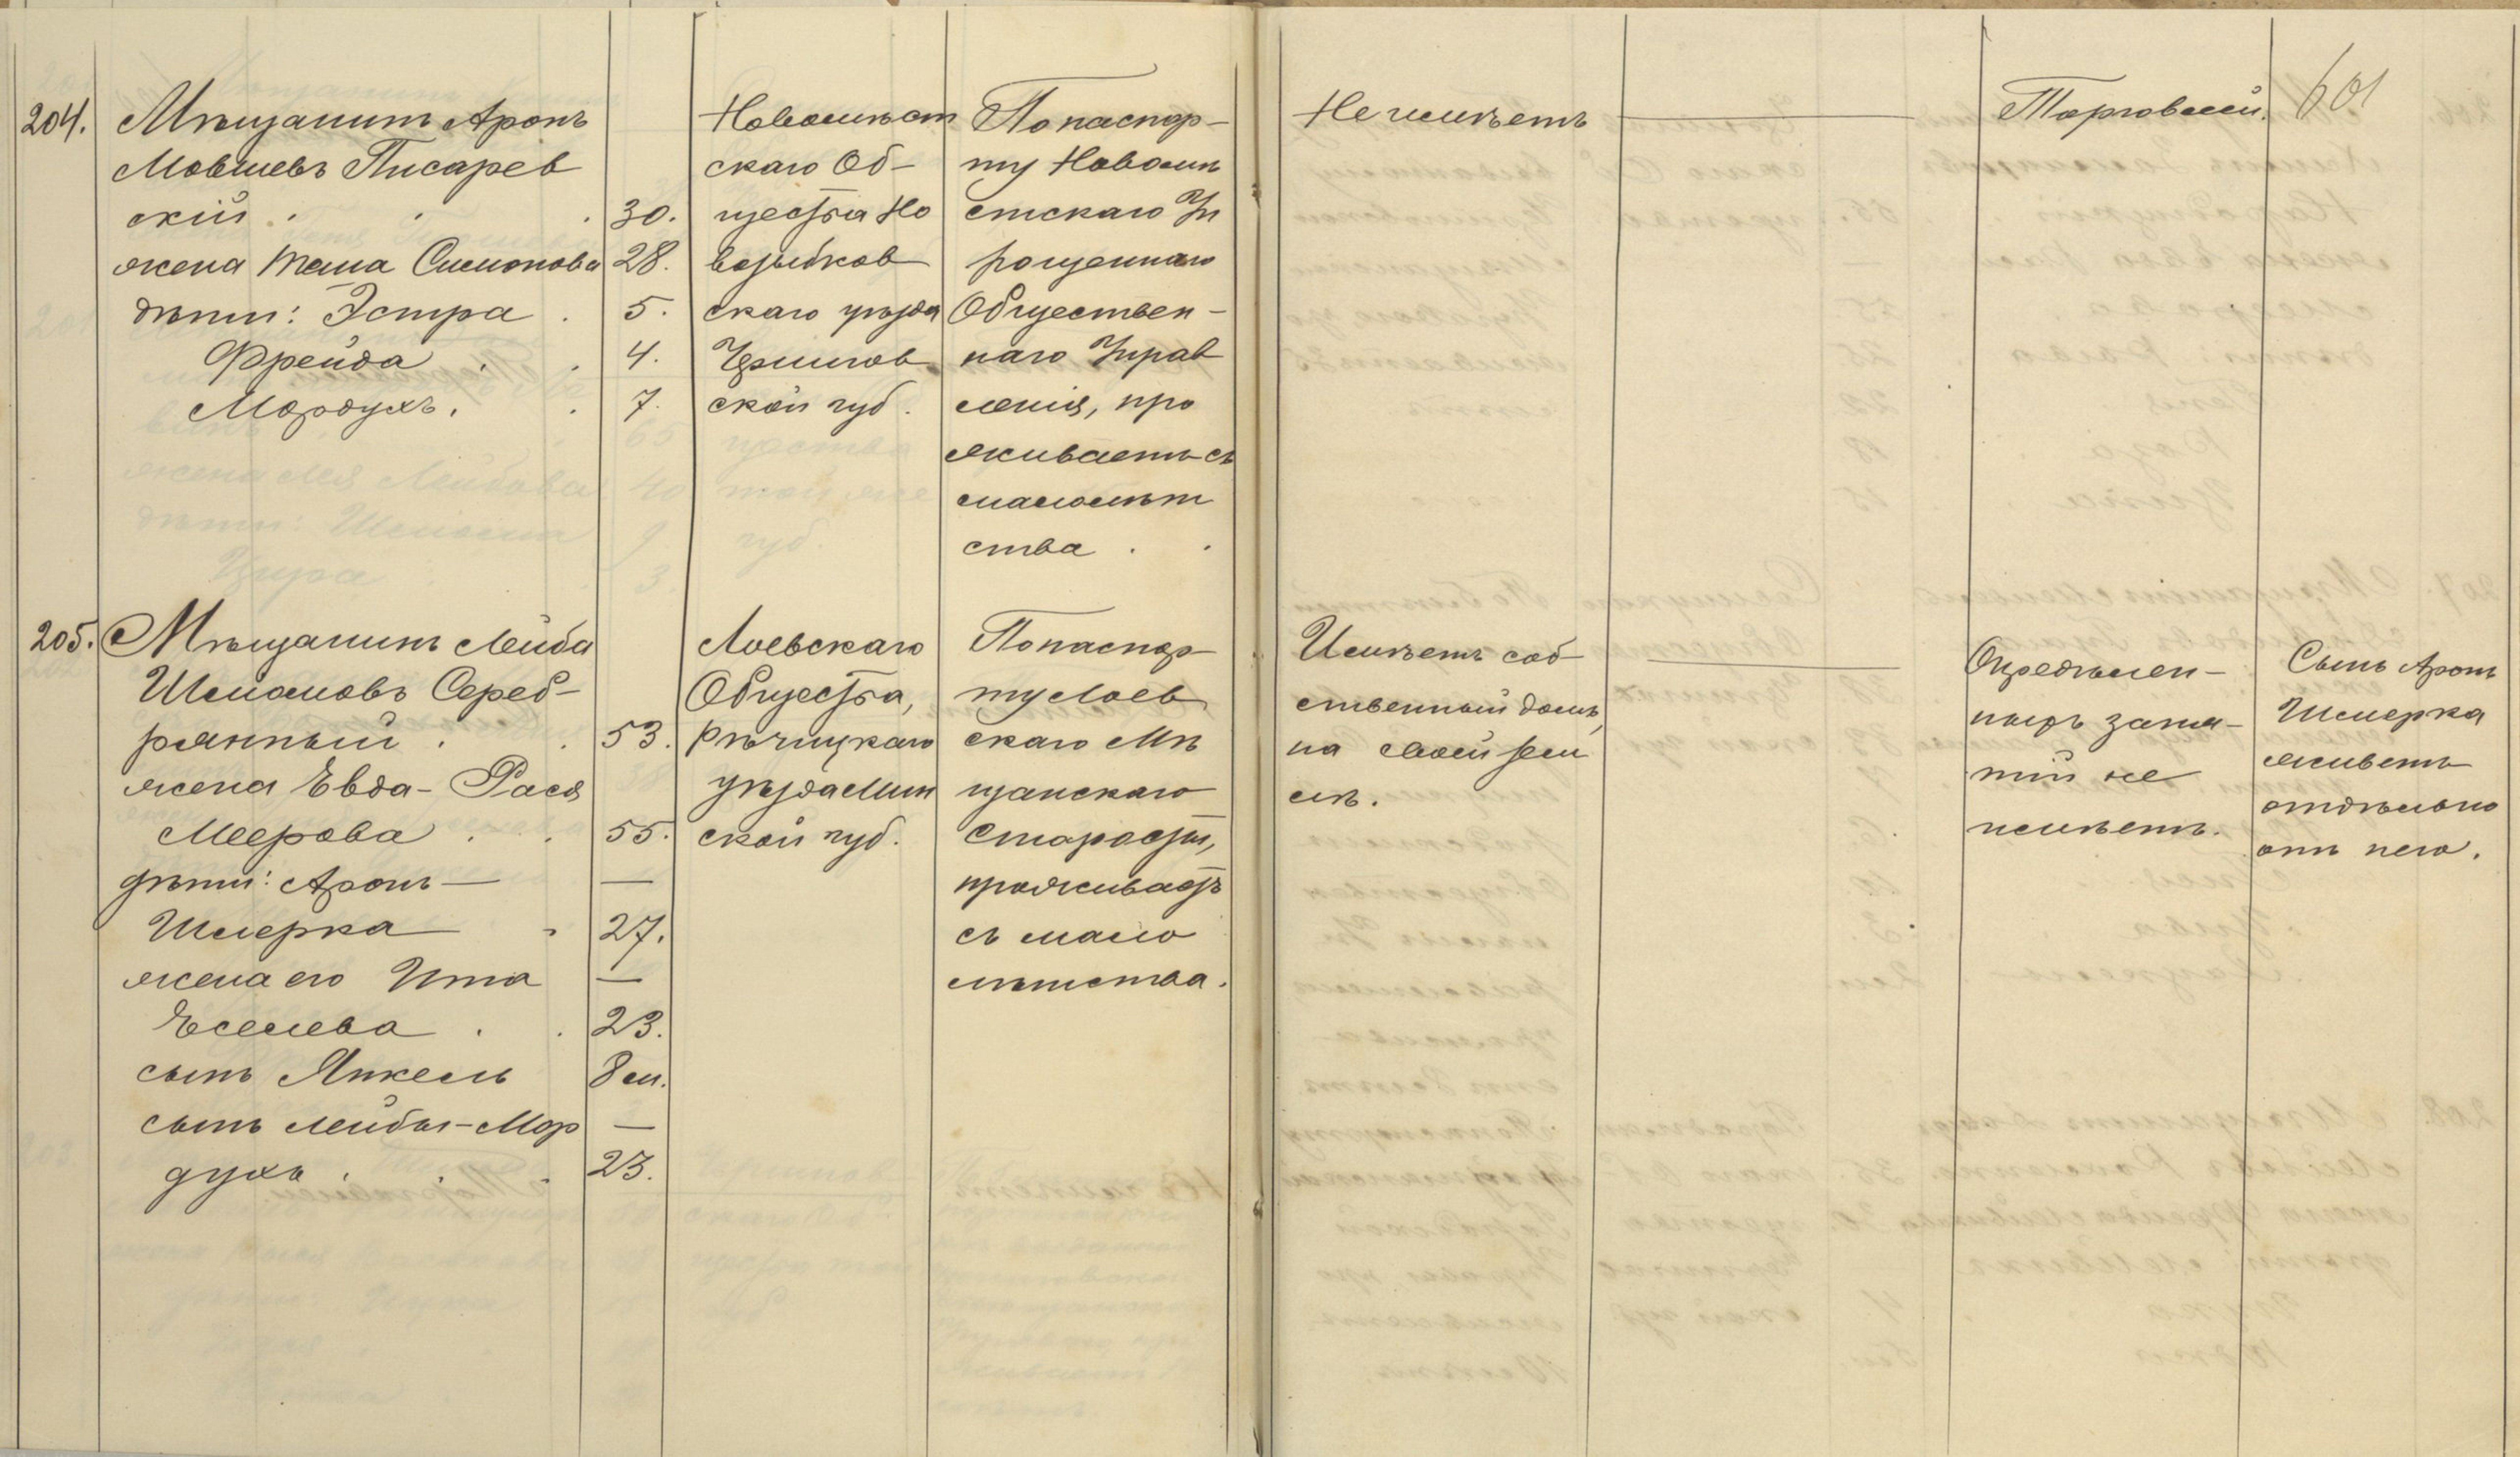 204.
Мѣщанинъ Аронъ
Мовшевъ Писарев
скій . . . 30.
жена Тема Симонова 28.
дѣти: Эстра . 5.
Фрейда . . 4.
Мордухъ. . 7.
Новомѣст
скаго Об-
щества Но
возыбков
скаго уѣзда
Чернигов
ской губ.
По паспор-
ту Новомѣ
стскаго Уп
рощеннаго
Обществен-
наго Управ
ленія, про
живаетъ съ
малолѣт
ства . .
Не имѣетъ
—
Торговлей.
601
205.
Мѣщанинъ Лейба
Шлиомовъ Сереб-
рянный . . 53.
жена Евда-Рася
Меерова . . 55.
дѣти: Аронъ — —
Шмерка . 27.
жена его Ита —
Еселева . . 23.
сынъ Янкель 8 м.
сынъ Лейбы-Мор —
духъ . . . 23.
Лоевскаго
Общества,
Рѣчицкаго
уѣзда Мин
ской губ.
По паспор-
ту Лоев
скаго Мѣ
щанскаго
Старосты,
проживаетъ
съ мало
лѣтства.
Имѣетъ соб
ственный домъ,
на своей зем
лѣ.
—
Опредѣлен-
ныхъ заня-
тій не
имѣетъ.
Сынъ Аронъ
Шмерка
живетъ
отдѣльно
отъ него.